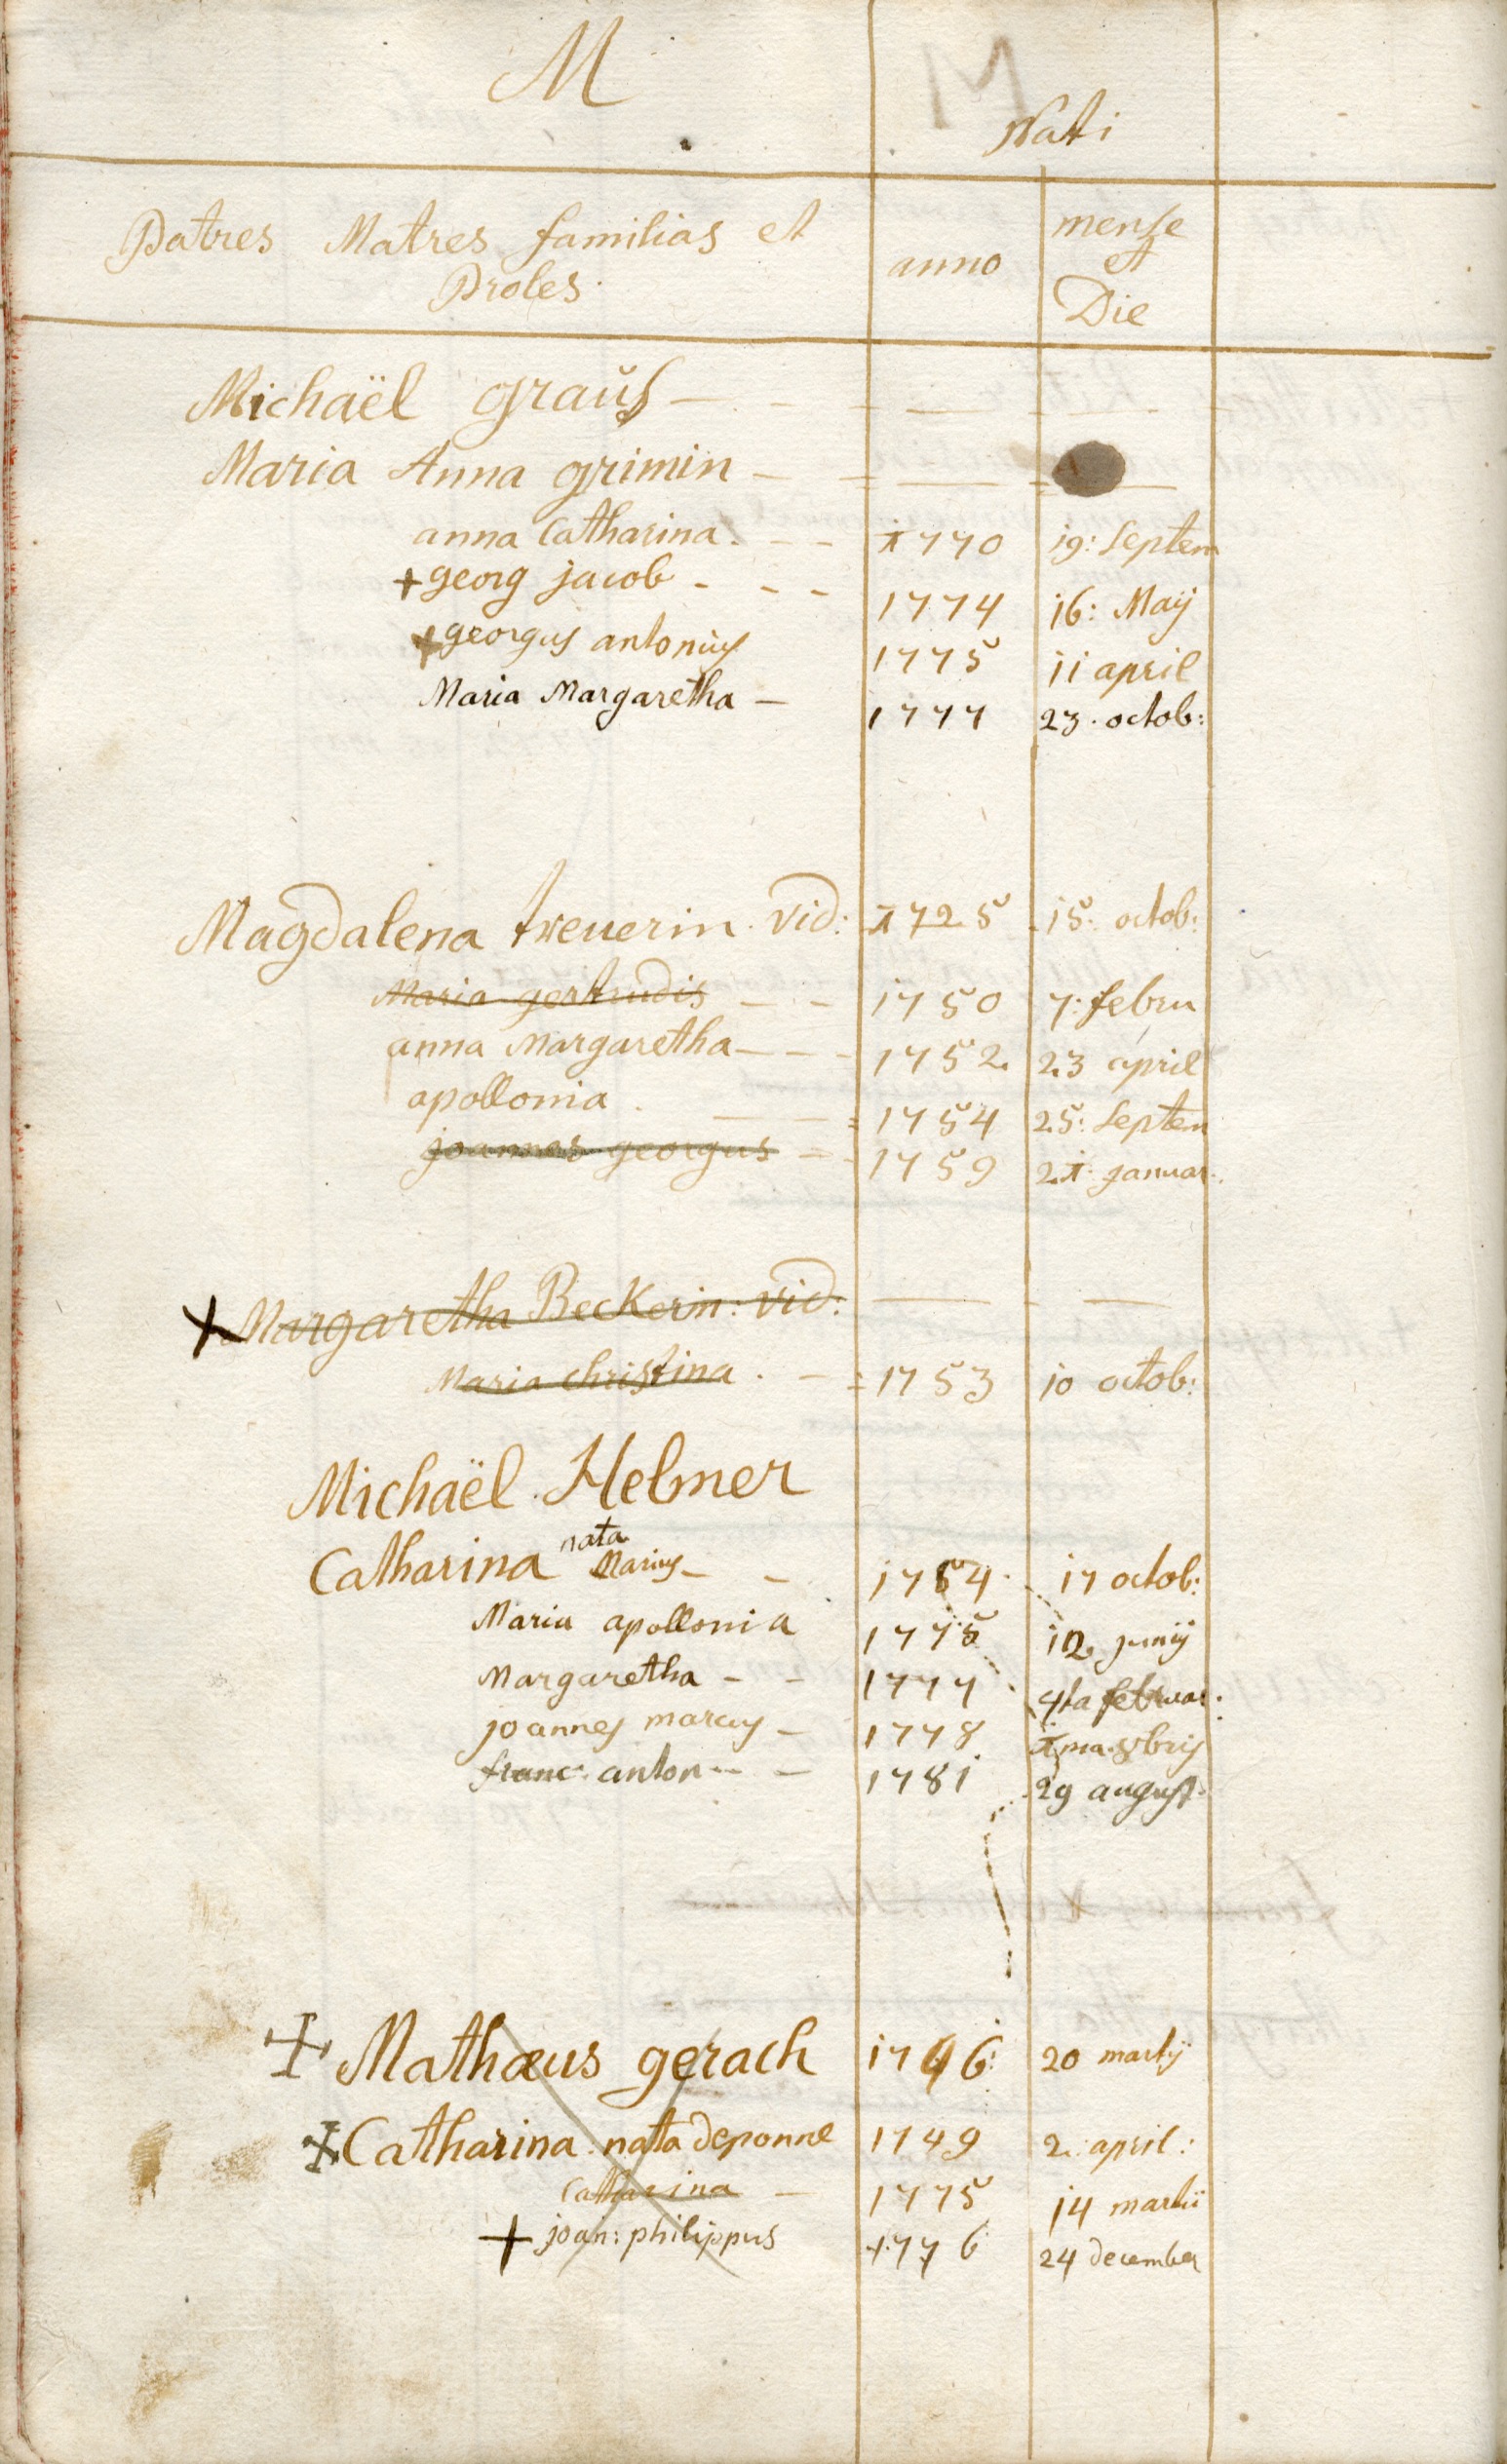 M
Nati
Patres Matres familias et
Proles.
anno
mense
et
Die
Michaël graus — - - — —
Maria Anna grimin - - — -
anna Catharina. - - 1770 19: Septem
+ georg jacob - - - 1774 16: Maij
+ georgus antonius 1775 11 april
Maria Margaretha — 1777 23. octob:
Magdalena treuerin. vid: 1725 15. octob:
Maria gertrudis - - 1750 7: febru
anna Margaretha - - - 1752. 23 april
apollonia. — - 1754 25: Septem
joannes georgus = - 1759 21. januar.
+ Margaretha Beckerin: vid: — - —
Maria christina. - 1753 10 octob:
Michaël Helmer
Catharina nata Marius - - 1754. 17 octob:
Maria apollonia 1775 12 junij
Margaretha - - 1777 4ta februar:
joannes marcus - 1778 1ma 8bris
franc: anton - - 1781 29 august.
+ Mathæus gerach 1746: 20 martij
+ Catharina: nata deponne 1749 2. april:
Catharina - 1775 14 martii
+ joan: philippus 1776 24 december